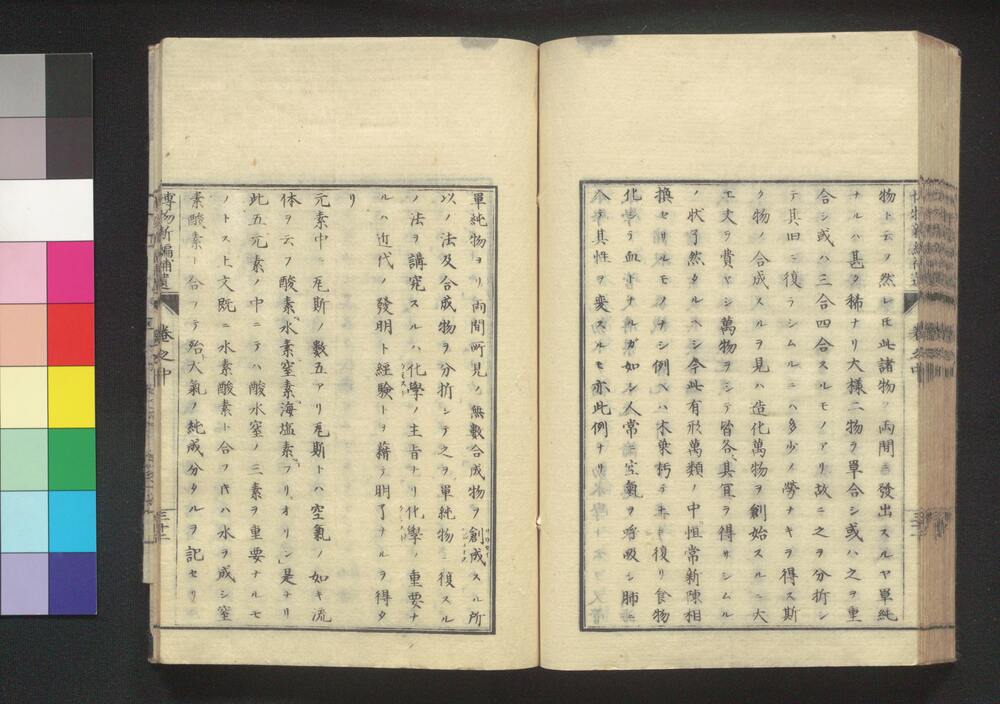 物ト云フ然レ𪜈此諸物ヲ両間ニ發出スルヤ單純
ナルハ甚タ稀ナリ大様二物ヲ單合シ或ハ之ヲ重
合シ或ハ三合四合スルモノアリ故ニ之ヲ分析シ
テ其旧ニ復ラシムルニハ多少ノ勞ナキヲ得ス斯
ク物ノ合成スルヲ見ハ造化萬物ヲ創始スルニ大
工丈ヲ費ヤシ萬物ヲシテ皆各其冝ヲ得サシムル
ノ状了然タルヘシ今此有形萬類ノ中恒常新陳相
換セサルモノナシ例ヘハ木葉朽テ木ニ復リ食物
化シテ血トナルガ如シ人常ニ空氣ヲ呼吸シ肺ニ
入テ其性ヲ変スルモ亦此例ナリ
單純物ヨリ両間所見ノ無数合成物ヲ創成スル所
以ノ法及合成物ヲ分析シテ之ヲ單純物ニ復スル
ノ法ヲ講究スルハ化學ノ主旨ナリ化學ノ重要ナ
ルハ近代ノ發明ト経験トヲ藉テ明了ナルヲ得タ
リ
元素中ニ瓦斯ノ数五アリ瓦斯トハ空氣ノ如キ流
体ヲ云フ酸素水素窒素海塩素フリオリン是ナリ
此五元素ノ中ニテハ酸水窒ノ三素ヲ重要ナルモ
ノトス上文既ニ水素酸素ト合フ𪜈ハ水ヲ成シ窒
素酸素ト合フテ殆大氣ノ純成分タルヲ記セリ
博物新編補遺
巻之中
三十二